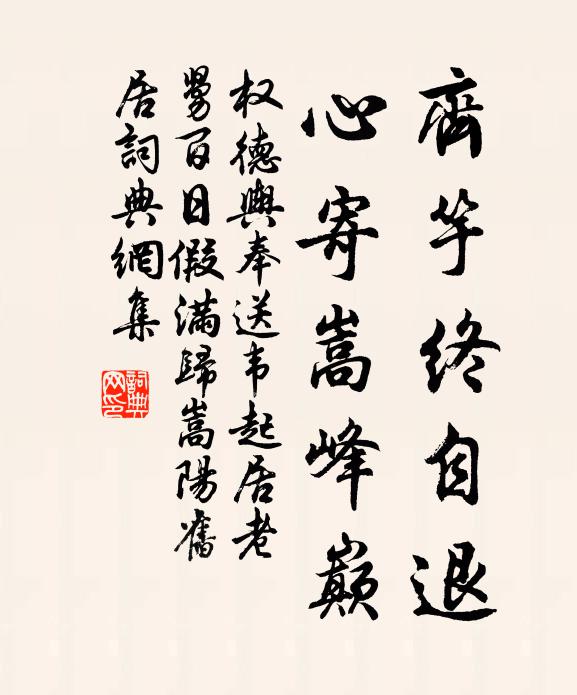 齊竽終自退
心寄嵩峰巔
权德輿奉送韦起居老
舅百日假滿歸嵩陽舊
居詞典網集
詞典
网印